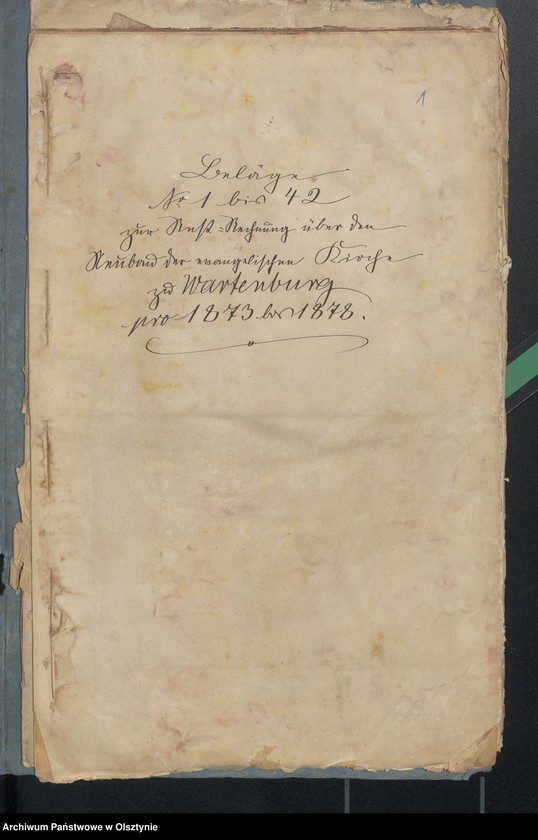 1
Beläge
No 1 bis 42
zur Rest-Rechnung über den
Neubau der evangelischen Kirche
zu Wartenburg
pro 1873 bis 1878.
Archiwum Państwowe w Olsztynie